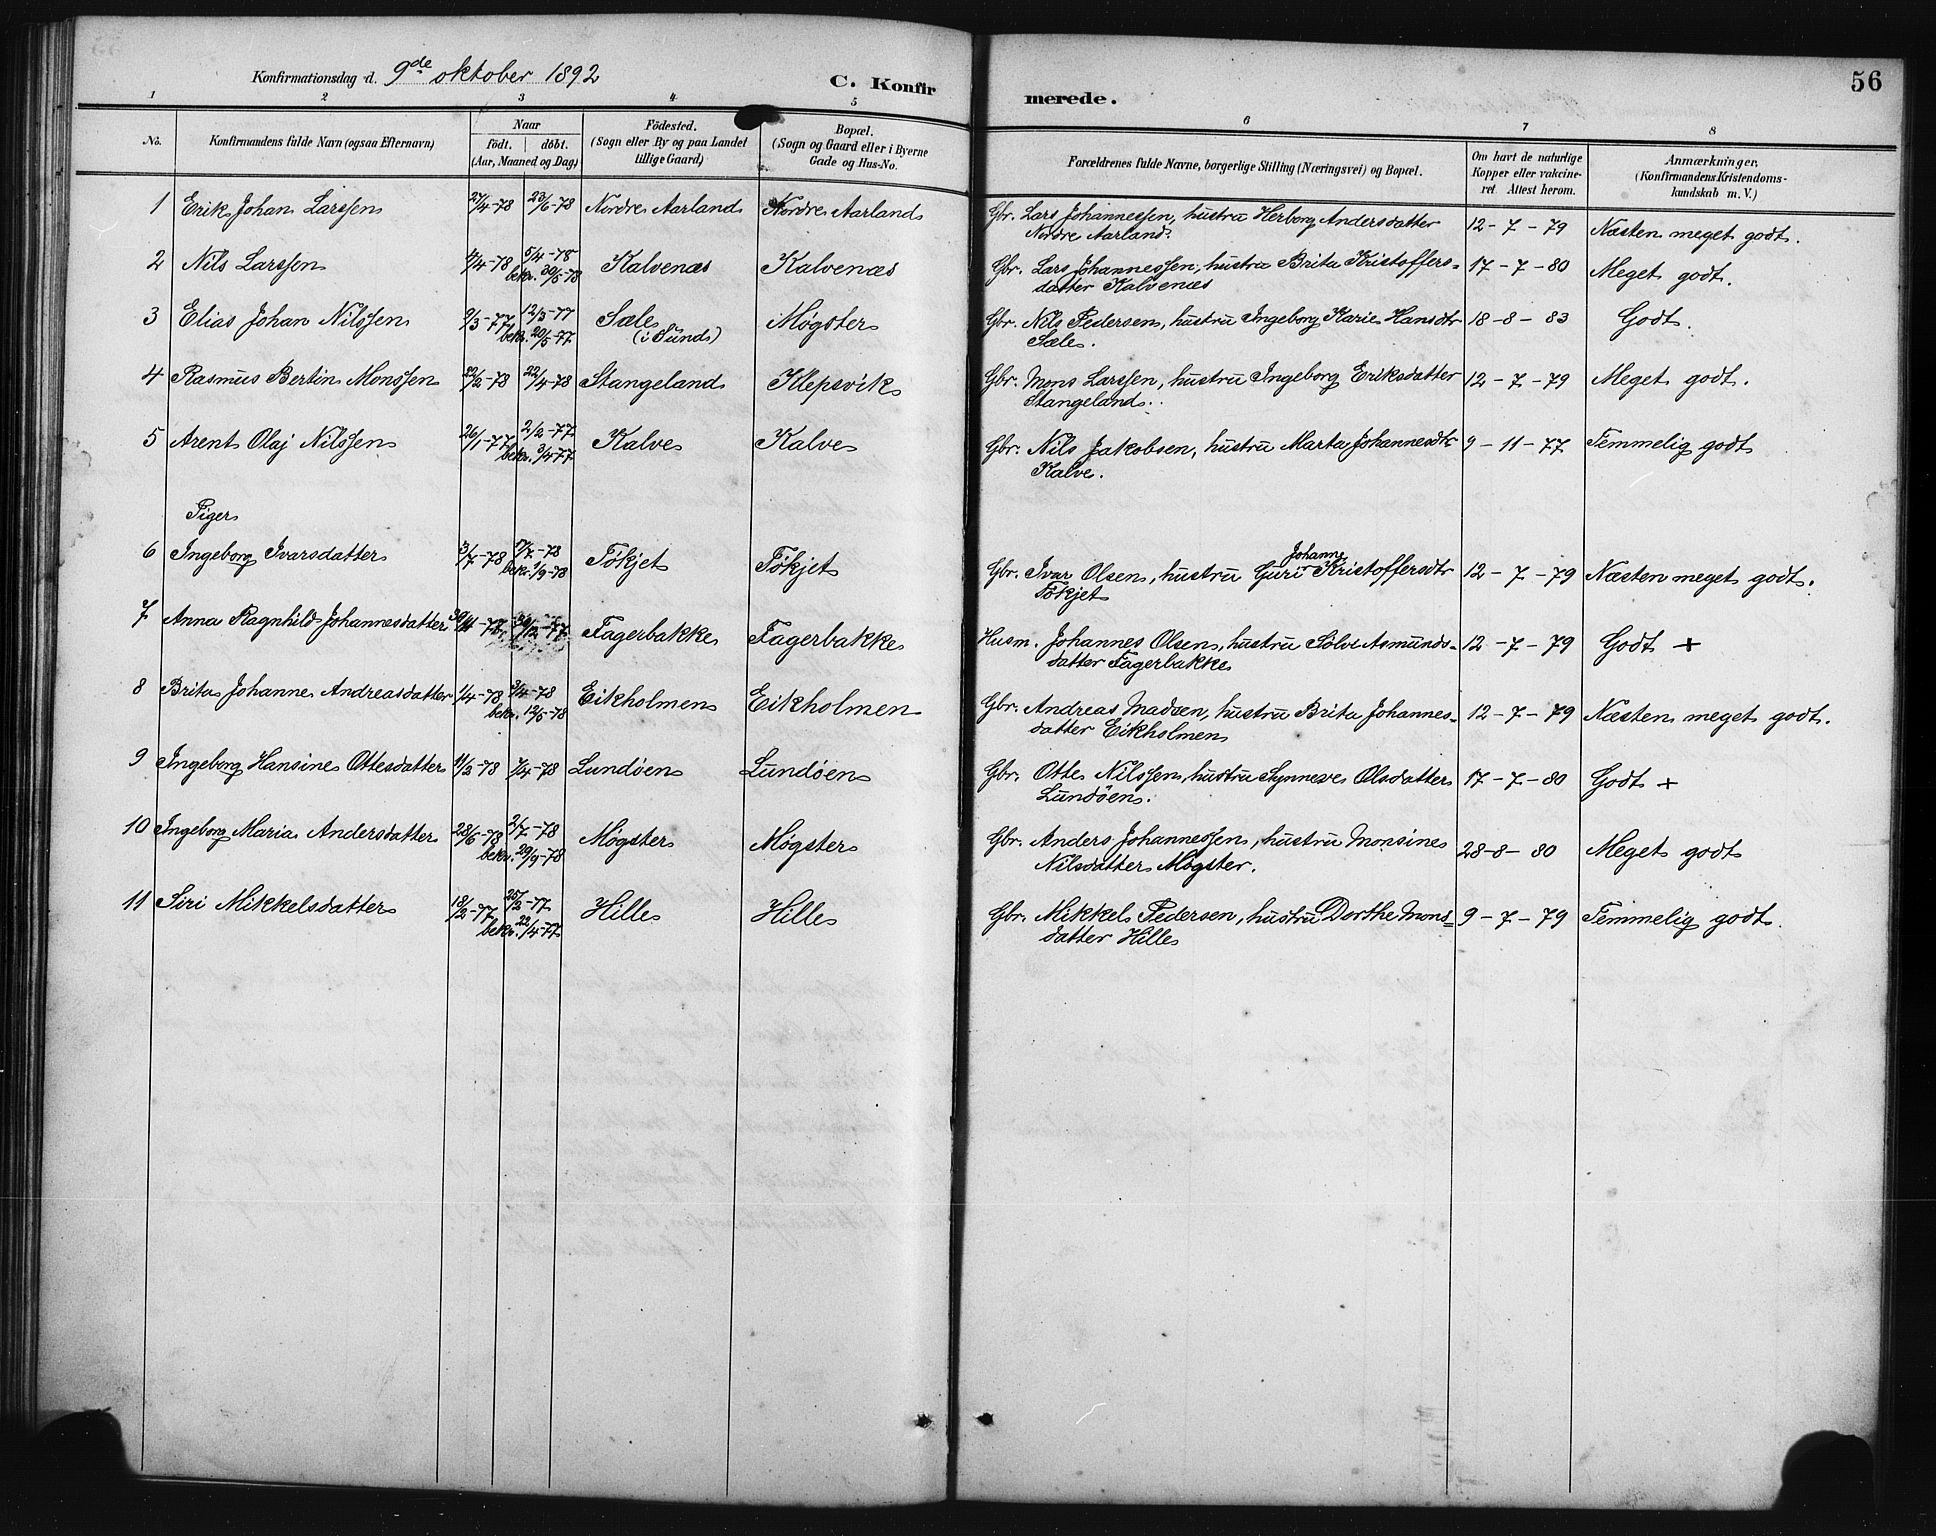 Konfirmationsdag d. 9de oktober 1892
C. Konfirmerede.
56
1 2 3 4 5 6 7 8
No.
Konfirmandens fulde Navn (ogsaa Efternavn)
Naar
födt. | döbt.
(Aar, Maaned og Dag)
Födested.
(Sogn eller By og paa Landet
tillige Gaard)
Bopæl.
(Sogn og Gaard eller i Byerne
Gade og Hus-No.
Forældrenes fulde Navne, borgerlige Stilling (Næringsvei) og Bopæl.
Om havt de naturlige
Kopper eller vakcine-
ret. Attest herom.
Anmærkninger.
(Konfirmandens Kristendoms-
kundskab m. V.)
1 Erik Johan Larssen 27/4-78 23/6-78 Nordre Aarland Nordre Aarland Gbr. Lars Johannessen, hustru Herborg Andersdatter 12-7-79 Næsten meget godt.
Nordre Aarland.
2 Nils Larssen 4/4-78 5/4-78 Kalvenæs Kalvenæs Gbr. Lars Johannessen, hustru Brita Kristoffers- 17-7-80 Meget godt.
bekr. 30/5-78 datter Kalvenæs
3 Elias Johan Nilssen 9/3-77 12/3-77 Sæle Møgster Gbr. Nils Pedersen, hustru Ingeborg Karie Hansdtr 18-8-83 Godt.
bekr. 20/5-77 (i Sund) Sæle.
4 Rasmus Bertin Monssen 22/2-78 22/4-78 Stangeland Klepsvik Gbr. Mons Larssen, hustru Ingeborg Eriksdatter 12-7-79 Meget godt.
Stangeland.
5 Arent Olaj Nilssen 26/1-77 2/2-77 Kalve Kalve Gbr. Nils Jakobsen, hustru Marta Johannesdtr 9-11-77 Temmelig godt
bekr. 3/4-77 Kalve.
Piger
6 Ingeborg Ivarsdatter 3/7-78 17/7-78 Fökjet Fökjet Gbr. Ivar Olsen, hustru Guri Johanne Kristoffersdtr 12-7-79 Næsten meget godt.
bekr. 1/9-78 Fökjet
7 Anna Ragnhild Johannesdatter Fagerbakke Fagerbakke Husm. Johannes Olsen, hustru Sölve Asmunds- 12-7-79 Godt +
datter Fagerbakke
8 Brita Johanne Andreasdatter 1/4-78 3/4-78 Eikholmen Eikholmen Gbr. Andreas Madsen, hustru Brita Johannes- 12-7-79 Næsten meget godt.
bekr. 12/5-78 datter Eikholmen
9 Ingeborg Hansine Ottesdatter 11/2-78 7/4-78 Lundöen Lundöen Gbr. Otte Nilssen, hustru Synneve Olsdatter 17-7-80 Godt +
Lundöen.
10 Ingeborg Maria Andersdatter 28/6-78 2/7-78 Møgster Møgster Gbr. Anders Johannessen, hustru Monsine 28-8-80 Meget godt
bekr. 29/9-78 Nilsdatter Møgster.
11 Siri Mikkelsdatter 18/2-77 25/2-77 Hille Hille Gbr. Mikkel Pedersen, hustru Dorthe Mons= 9-7-79 Temmelig godt.
bekr. 22/4-77 datter Hille